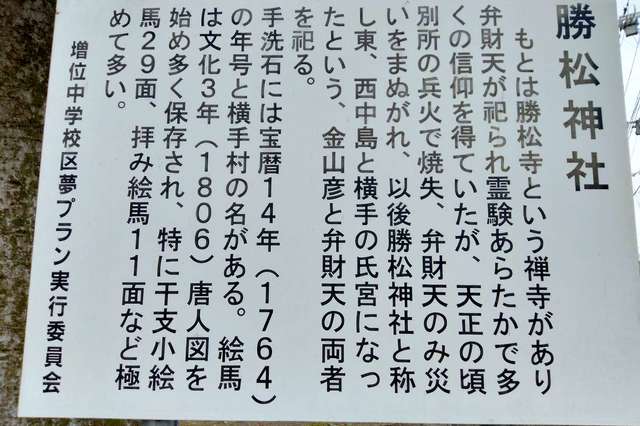 勝松神社
もとは勝松寺という禅寺があり
弁財天が祀られ霊験あらたかで多
くの信仰を得ていたが、天正の頃
別所の兵火で焼失、弁財天のみ災
いをまぬがれ、以後勝松神社と称
し東、西中島と横手の氏宮になっ
たという、金山彦と弁財天の両者
を祀る。
手洗石には宝暦14年（1764）
の年号と横手村の名がある。絵馬
は文化3年（1806）唐人図を
始め多く保存され、特に干支小絵
馬29面、拝み絵馬11面など極
めて多い。
増位中学校区夢プラン実行委員会